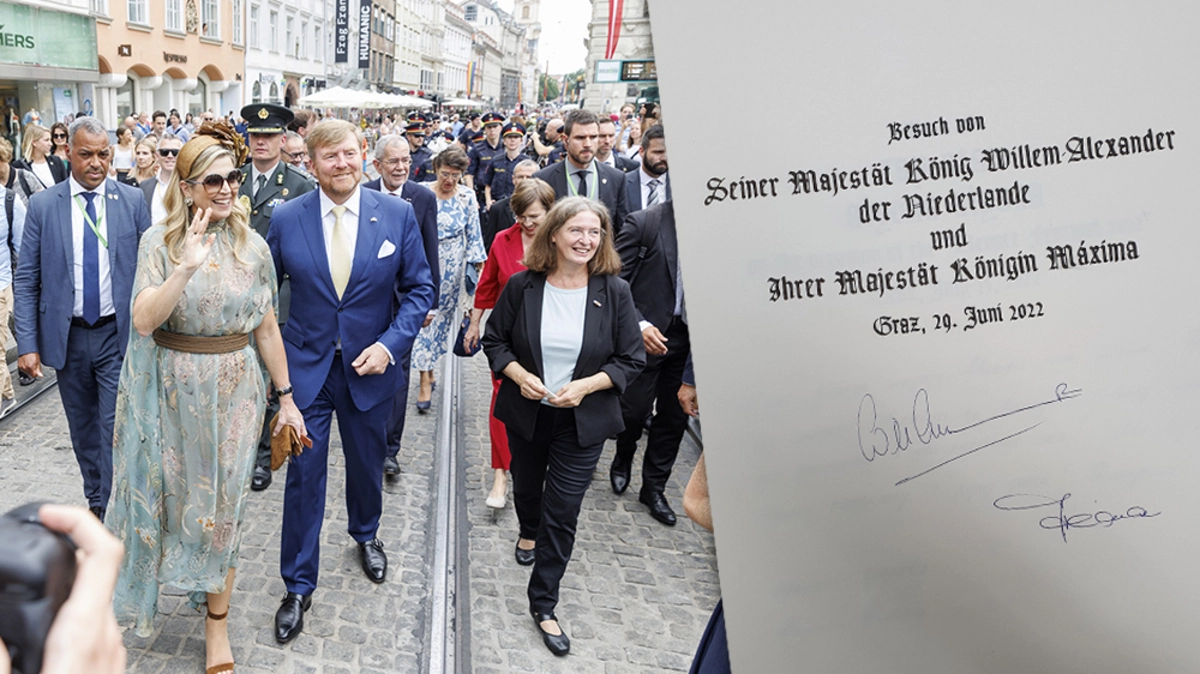 MERS
NESPRESSO
Frag Fran
HUMANIC
Besuch von
Seiner Majestät König Willem-Alexander
der Niederlande
und
Ihrer Majestät Königin Máxima
Graz, 29. Juni 2022